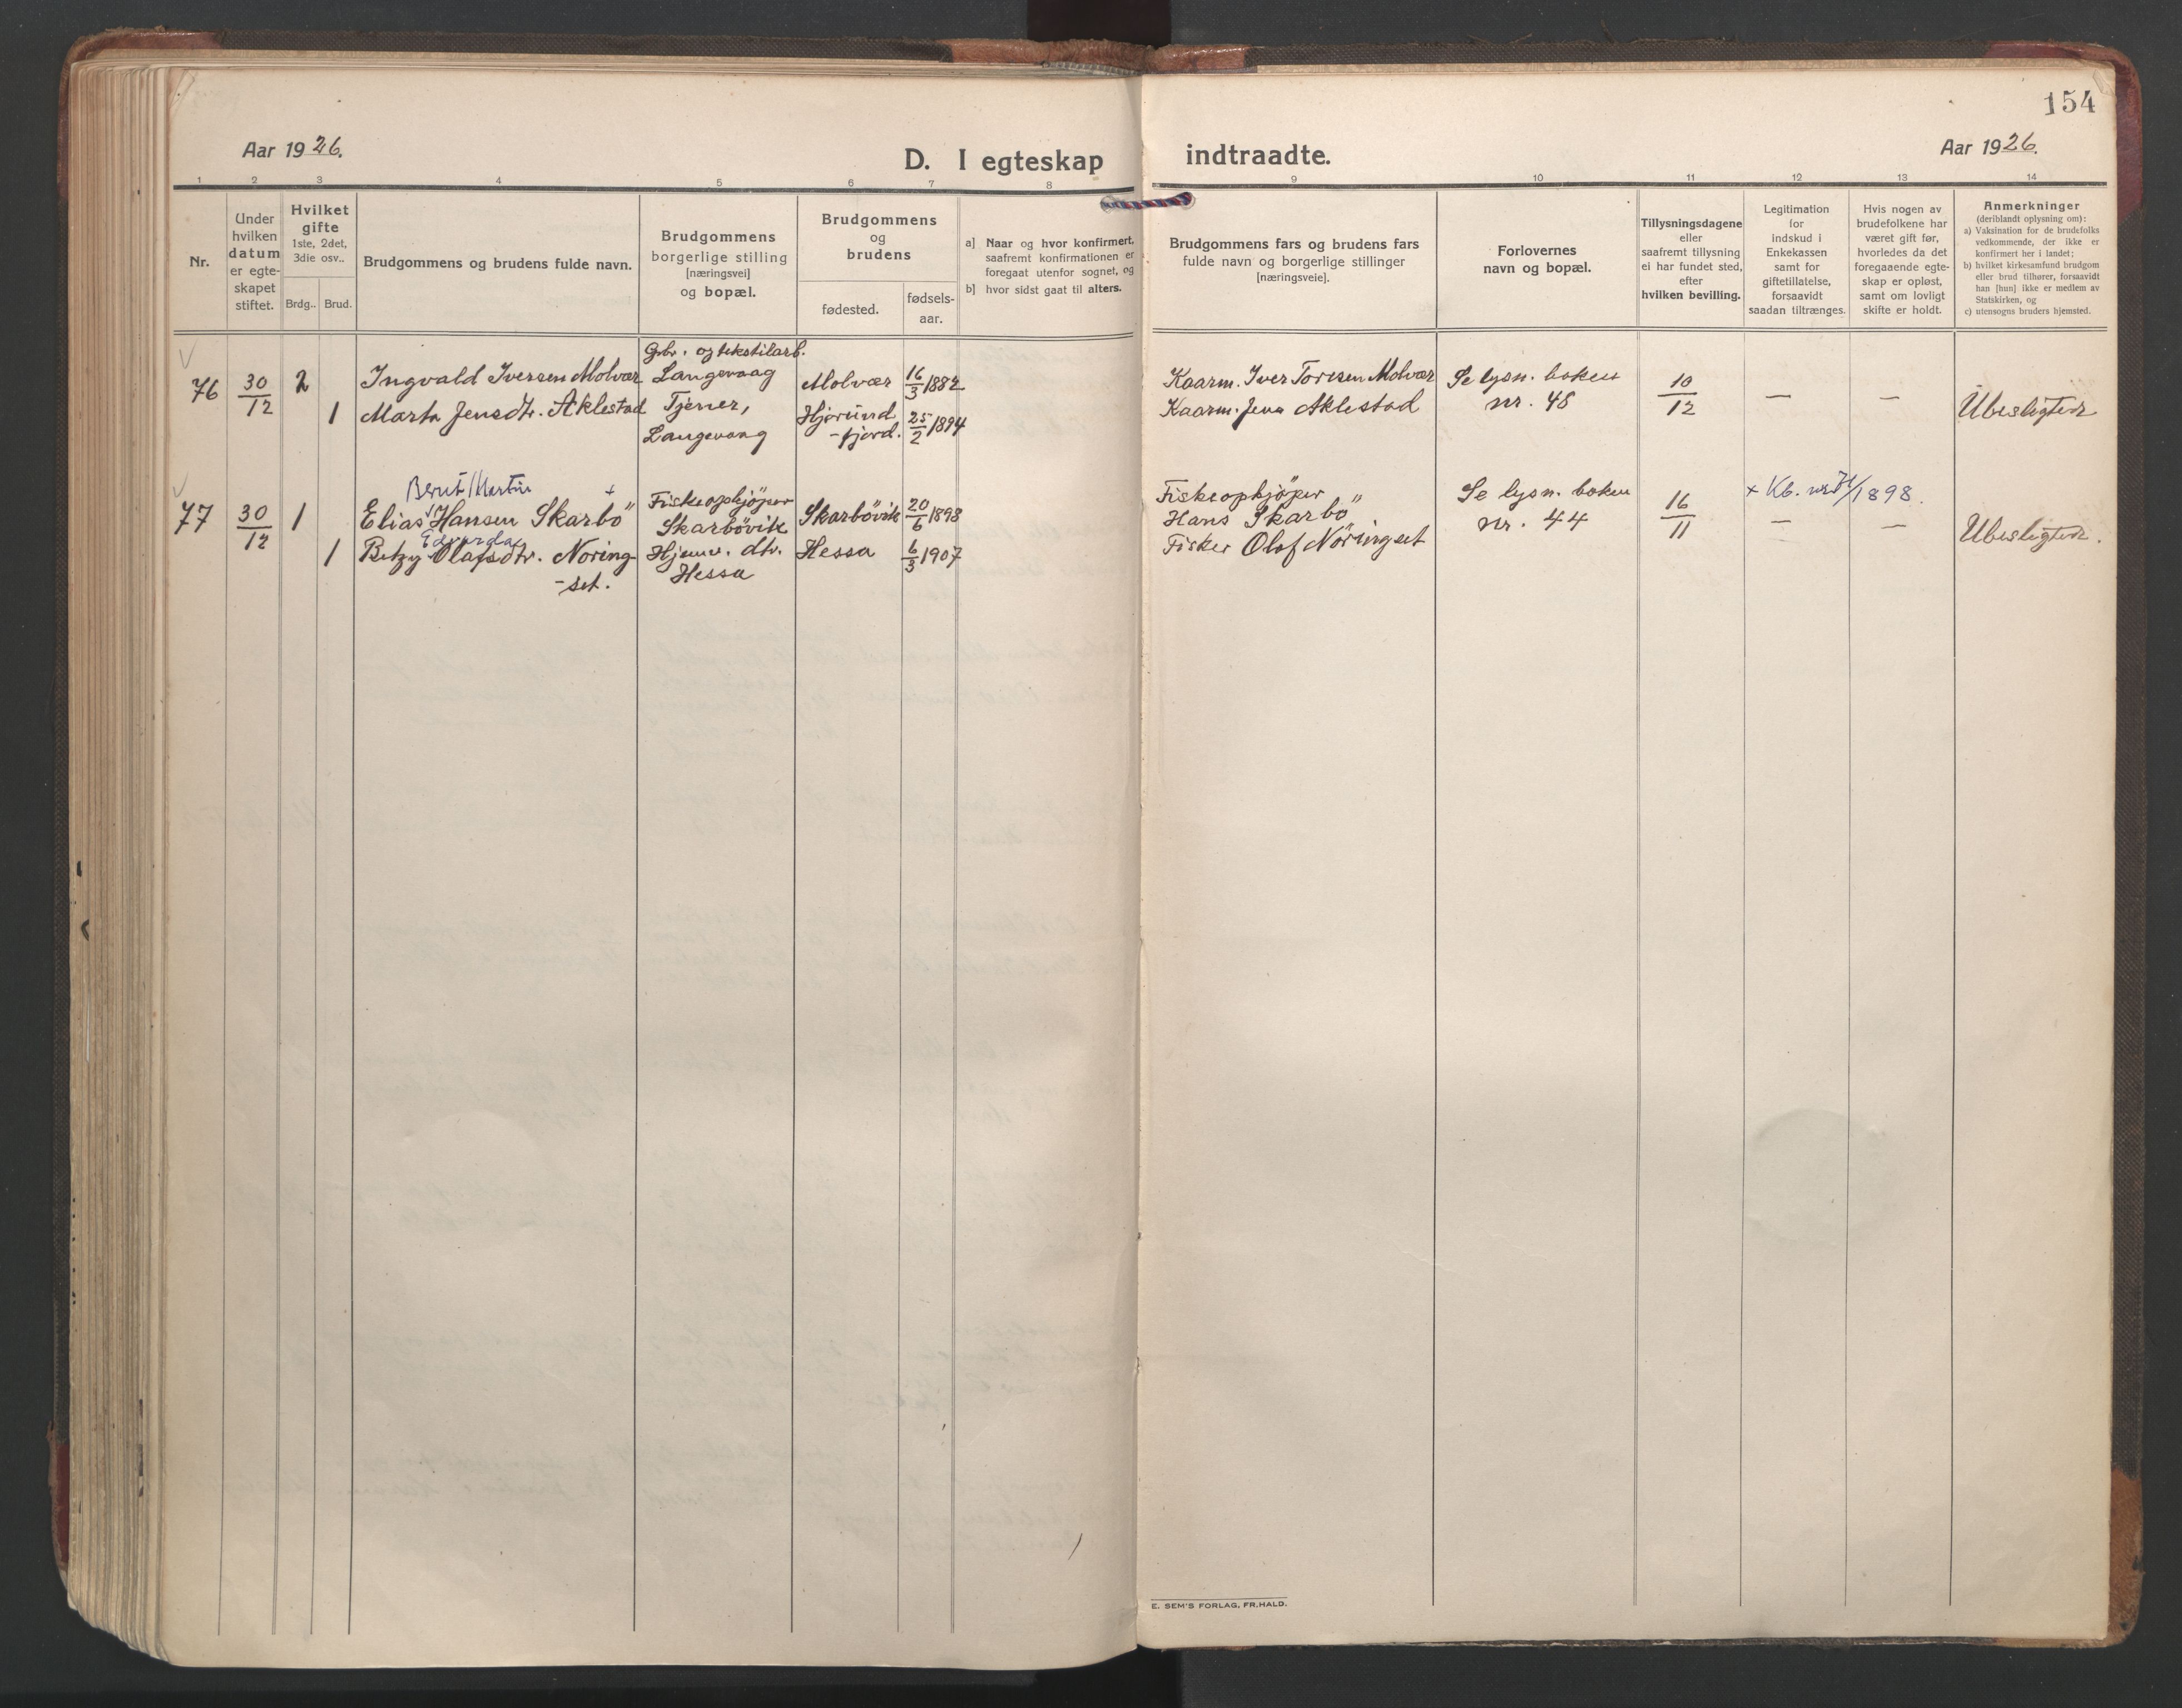 154
Aar 1926.
D. I egteskap
indtraadte.
Aar 1926.
1 2 3 4 5 6 7 8 9 10 11 12 13 14
Nr.
Under
hvilken
datum
er egte-
skapet
stiftet.
Hvilket
gifte
1ste, 2det,
3die osv..
Brdg.. Brud.
Brudgommens og brudens fulde navn.
Brudgommens
borgerlige stilling
[næringsvei]
og bopæl.
Brudgommens
og
brudens
fødested.
fødsels-
aar.
a] Naar og hvor konfirmert,
saafremt konfirmationen er
foregaat utenfor sognet, og
b] hvor sidst gaat til alters.
Brudgommens fars og brudens fars
fulde navn og borgerlige stillinger
[næringsveie].
Forlovernes
navn og bopæl.
Tillysningsdagene
eller
saafremt tillysning
ei har fundet sted,
efter
hvilken bevilling.
Legitimation
for
indskud i
Enkekassen
samt for
giftetillatelse,
forsaavidt
saadan tiltrænges.
Hvis nogen av
brudefolkene har
været gift før,
hvorledes da det
foregaaende egte-
skap er opløst,
samt om lovligt
skifte er holdt.
Anmerkninger
(deriblandt oplysning om):
a) Vaksination for de brudefolks
vedkommende, der ikke er
konfirmert her i landet;
b) hvilket kirkesamfund brudgom
eller brud tilhører, forsaavidt
han [hun] ikke er medlem av
Statskirken, og
c) utensogns bruders hjemsted.
76
30/12
2
1
Ingvald Iversen Molvær
Marta Jensdtr. Aklestad
Gbr. og tekstilarb.
Langevaag
Tjener,
Langevaag
Molvær
Hjørund
-fjord.
16/3 1882
25/2 1894
Kaarm. Iver Toresen Molvær
Kaarm. Jens Aklestad
Se lysn. boken
nr. 48
10/12
—
—
Ubeslegtede
77
30/12
1
1
Bernt Martin
Elias Hansen Skarbö +
Edvarda
Betzy Olafsdtr. Noring-
-set.
Fiskeopkjöper
Skarbövik
Hjemv. dtr.
Hessa
Skarbövik
Hessa
20/6 1898
6/3 1907
Fiskeopkjöper
Hans Skarbö
Fisker Olaf Nöringset
Se lysn. boken
nr. 44
16/11
+ Kb. nr. /1898.
—
—
Ubeslegtede.
E. SEM'S FORLAG, FR.HALD.